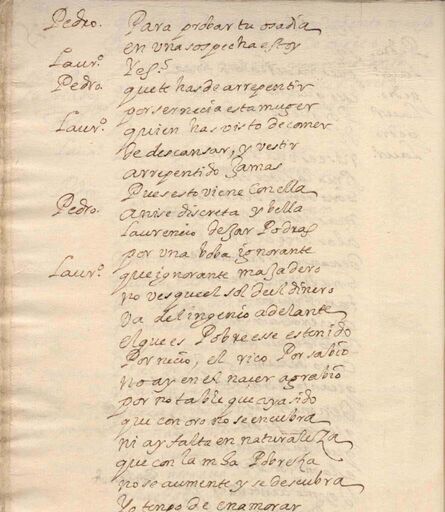 Pedro. Para probar tu osadia
en vna sospecha estoy
Laurº. Yes.
Pedro. que te has de arrepentir
por ser necia esta muger
Laurº. quien has visto de comer
de descansar, y vestir
arrepentido Jamas
Pues esto viene con ella
Pedro. a nise discreta y bella
Laurencio dejar Podras
por vna boba ignorante
Laurº. que ignorante majadero
no ves que el sol del dinero
va del ingenio adelante
el que es Pobre ese es tenido
Por necio, el rico Por sabio
No ay en el nacer agrabio
por notable que aya sido
que con oro no se encubra
ni ay falta en naturaleza
que con la mha Pobreza
no se aumente y se descubra
Yo tengo de enamorar